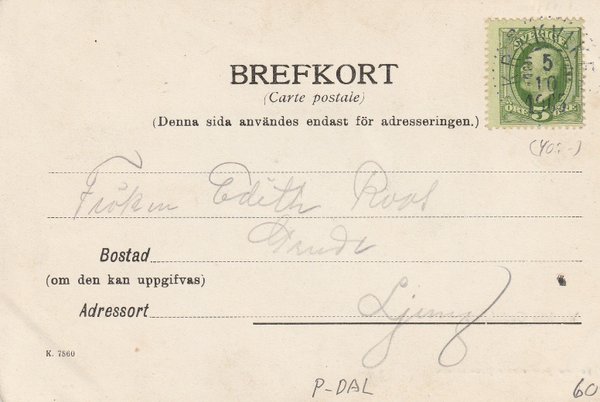 BREFKORT
(Carte postale)
(Denna sida användes endast för adresseringen.)
SVERIGE
5
10
5
(40:-)
Fröken Edith Roos
Bostad
(om den kan uppgifvas)
Adressort Ljung
K. 7860
P-DAL
60